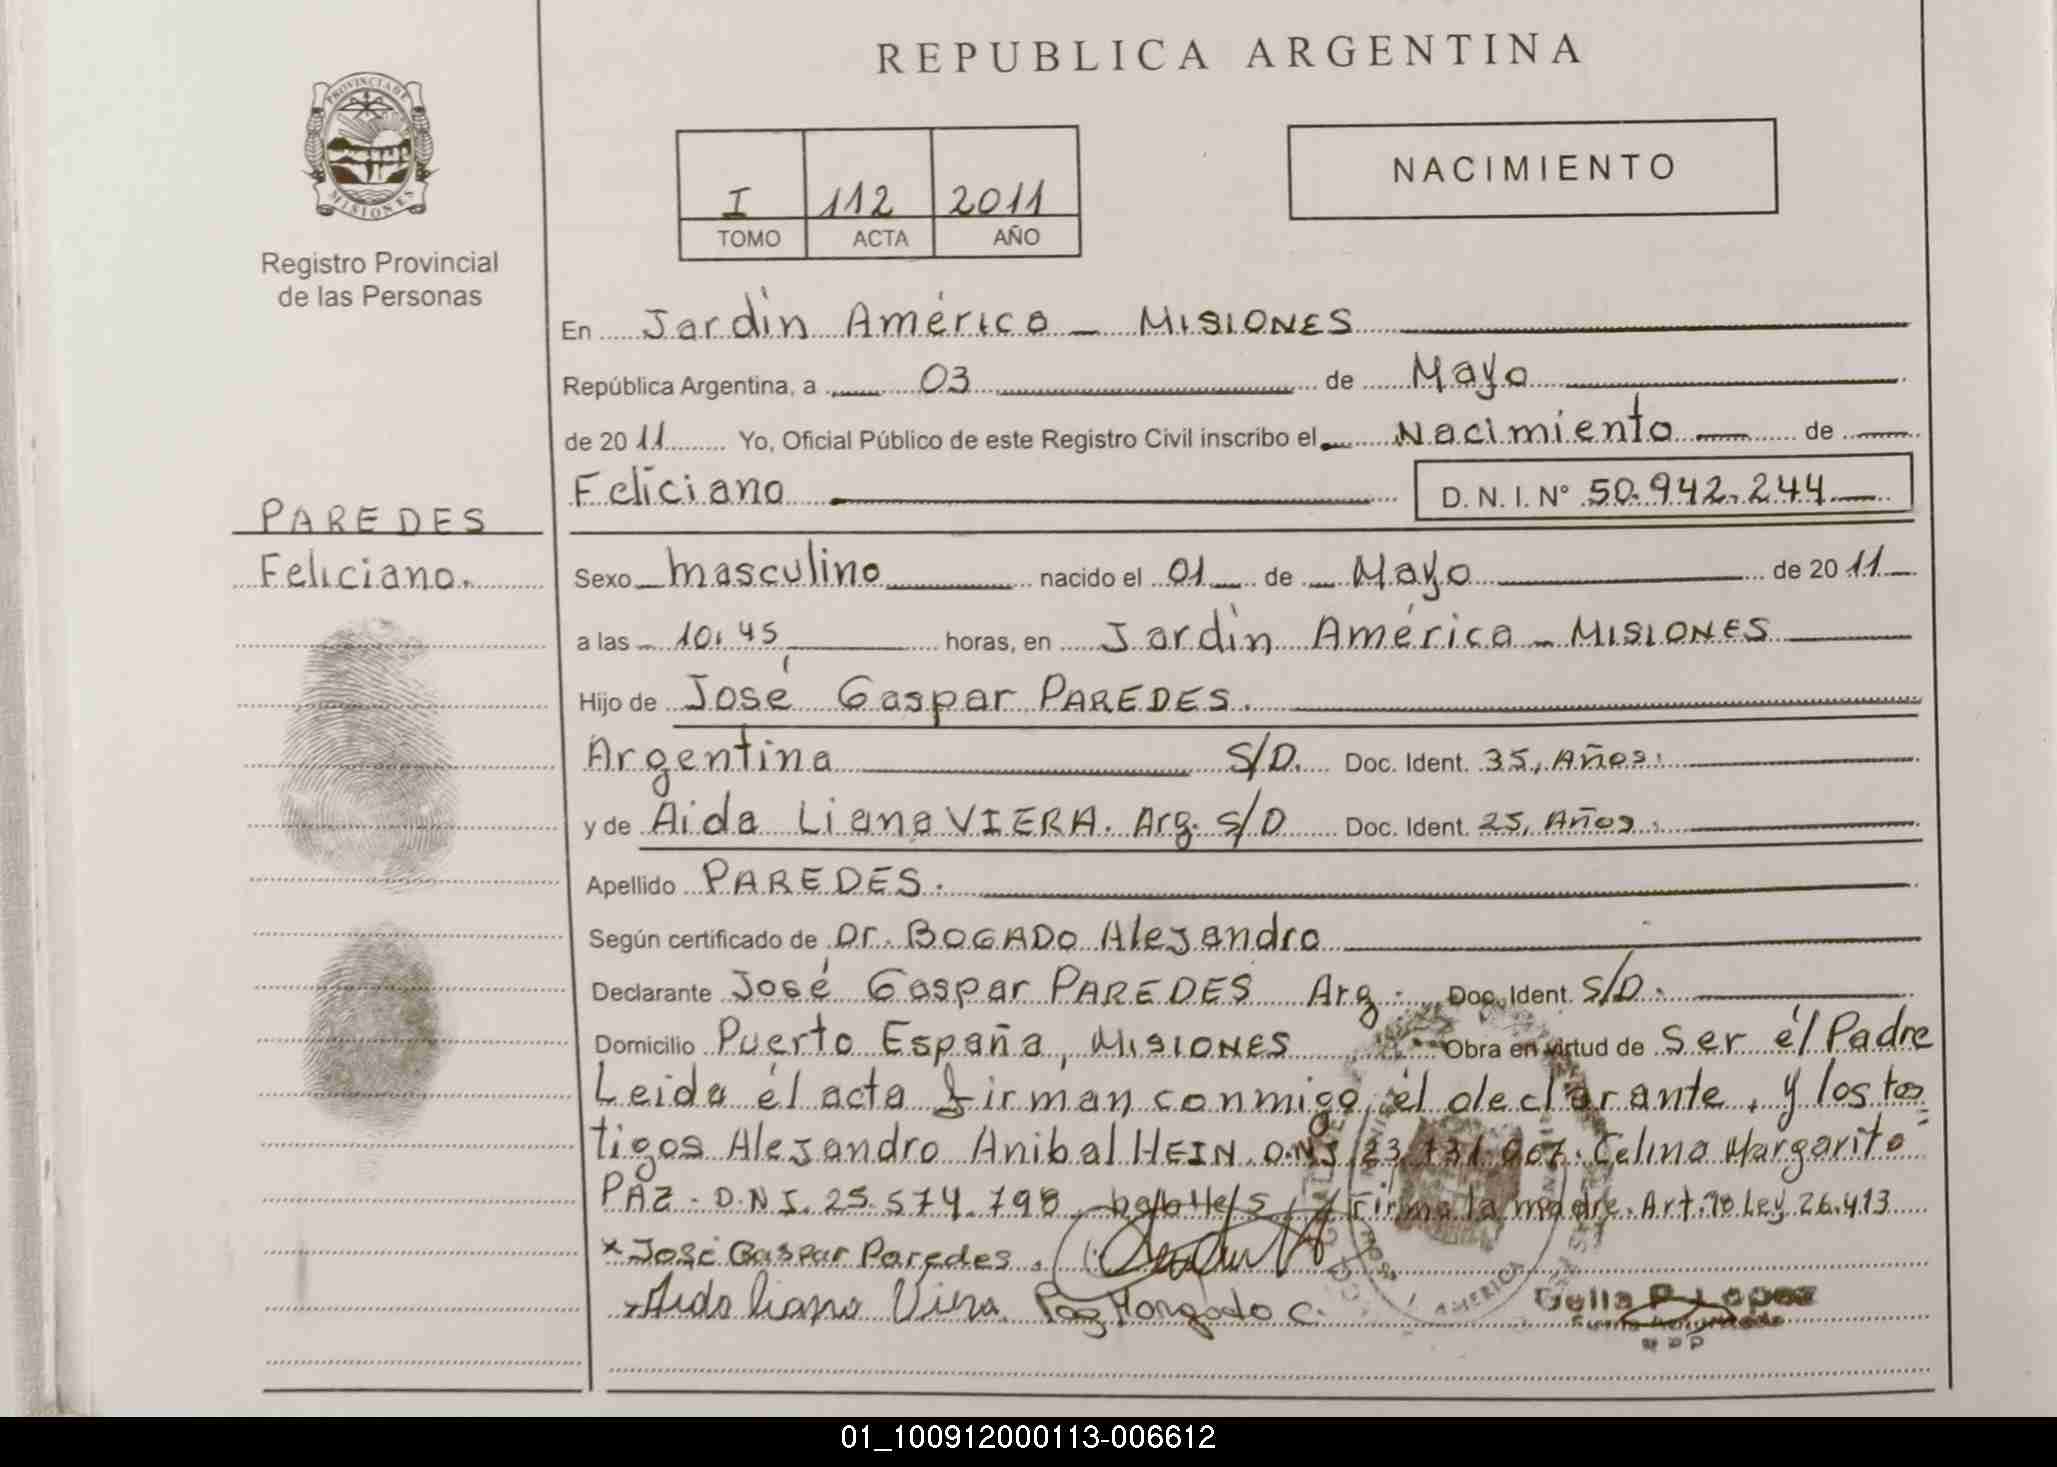 REPUBLICA ARGENTINA
PROVINCIA DE
MISIONES
Registro Provincial
de las Personas
I 112 2011
TOMO ACTA AÑO
NACIMIENTO
En Jardín América - MISIONES
República Argentina, a 03 de Mayo
de 2011 Yo, Oficial Público de este Registro Civil inscribo el Nacimiento de
Feliciano D. N. I. N° 50.942.244
PAREDES
Feliciano.
Sexo masculino nacido el 01 de Mayo de 2011
a las 10,45 horas, en Jardín América - MISIONES
Hijo de José Gaspar PAREDES.
Argentina S/D. Doc. Ident. 35, Años.
y de Aida Liana VIERA. Arg. S/D Doc. Ident. 25, Años.
Apellido PAREDES.
Según certificado de Dr. BOGADO Alejandro
Declarante José Gaspar PAREDES Arg. Doc. Ident. S/D.
Domicilio Puerto España, MISIONES Obra en virtud de Ser él Padre
Leida él acta firman conmigo él declarante, y los tes=
tigos Alejandro Anibal HEIN D.N.I 23.731.007. Celina Margarita
PAZ - D.N.I. 25.574.798 y Firma la madre. Art. Ley 26.413
* José Gaspar Paredes.
Aida Liana Viera. Paz Margarita C.
AMERICA
Lopez
01_100912000113-006612